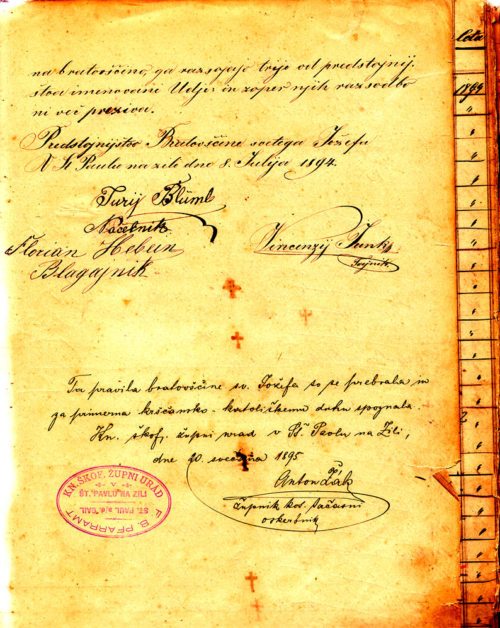 na bratovščino, ga razsojajo trije od predstojnij-
stva imenovani Udje in zoper njih razsodbo
ni več preziva.
Predstojnijstvo Bratovščine svetega Jožefa
V Št Pavlu na zili dne 8. Julija 1894.
Jurij Blüml
Načelnik
Florian
Blagajnik
Vincenzij
Tajnik
Ta pravila bratovščine sv. Jožefa so se prebrala in
za primerna keščansko-katoliškemu duhu spoznala.
Kn. škof. župni urad v Št. Pavlu na Zili,
dne 20. 1895
Anton Žak
župnik kot začasni
oskerbnik
KN. ŠKOF. ŽUPNI URAD
V
ŠT. PAVLU NA ZILI
ST. PAUL a/d. GAIL
F. B. PFARRAMT